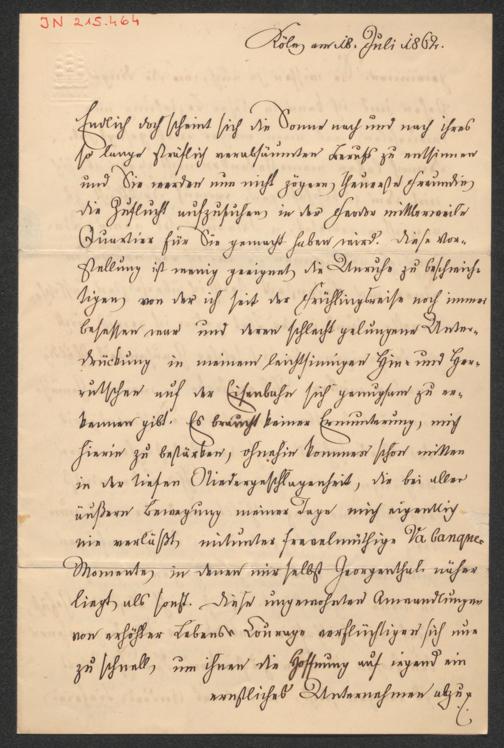 JN 215.464
Köln am 18. Juli 1867.
Endlich doch scheint sich die Sonne nach und nach ihres
so lange sträflich verabsäumten Berufs zu entsinnen
und Sie werden nun nicht zögern, theuerste Freundin,
die Zuflucht aufzusuchen, in der mittlerweile
Quartier für Sie gemacht haben wird. Diese Vor-
stellung ist wenig geeignet, die Unruhe zu beschwich-
tigen, von der ich seit der Frühlingsreise noch immer
besessen war und deren schlecht gelungene Unter-
drückung in meinem leichtsinnigen Hin- und Her-
rutschen auf der Eisenbahn sich genugsam zu er-
kennen gibt. Es braucht keiner Ermunterung, mich
hierin zu bestärken, ohnehin kommen schon mitten
in der tiefen Niedergeschlagenheit, die bei aller
äußern Bewegung meiner Tage mich eigentlich
nie verläßt, mitunter frevelmüthige Va banque-
Momente, in denen mir selbst Georgenthal näher
liegt als sonst. Diese ungewohnten Anwandlungen
von erhöhter Lebens-Courage verflüchtigen sich nur
zu schnell, um ihnen die Hoffnung auf irgend ein
ernstliches Unternehmen abzu-